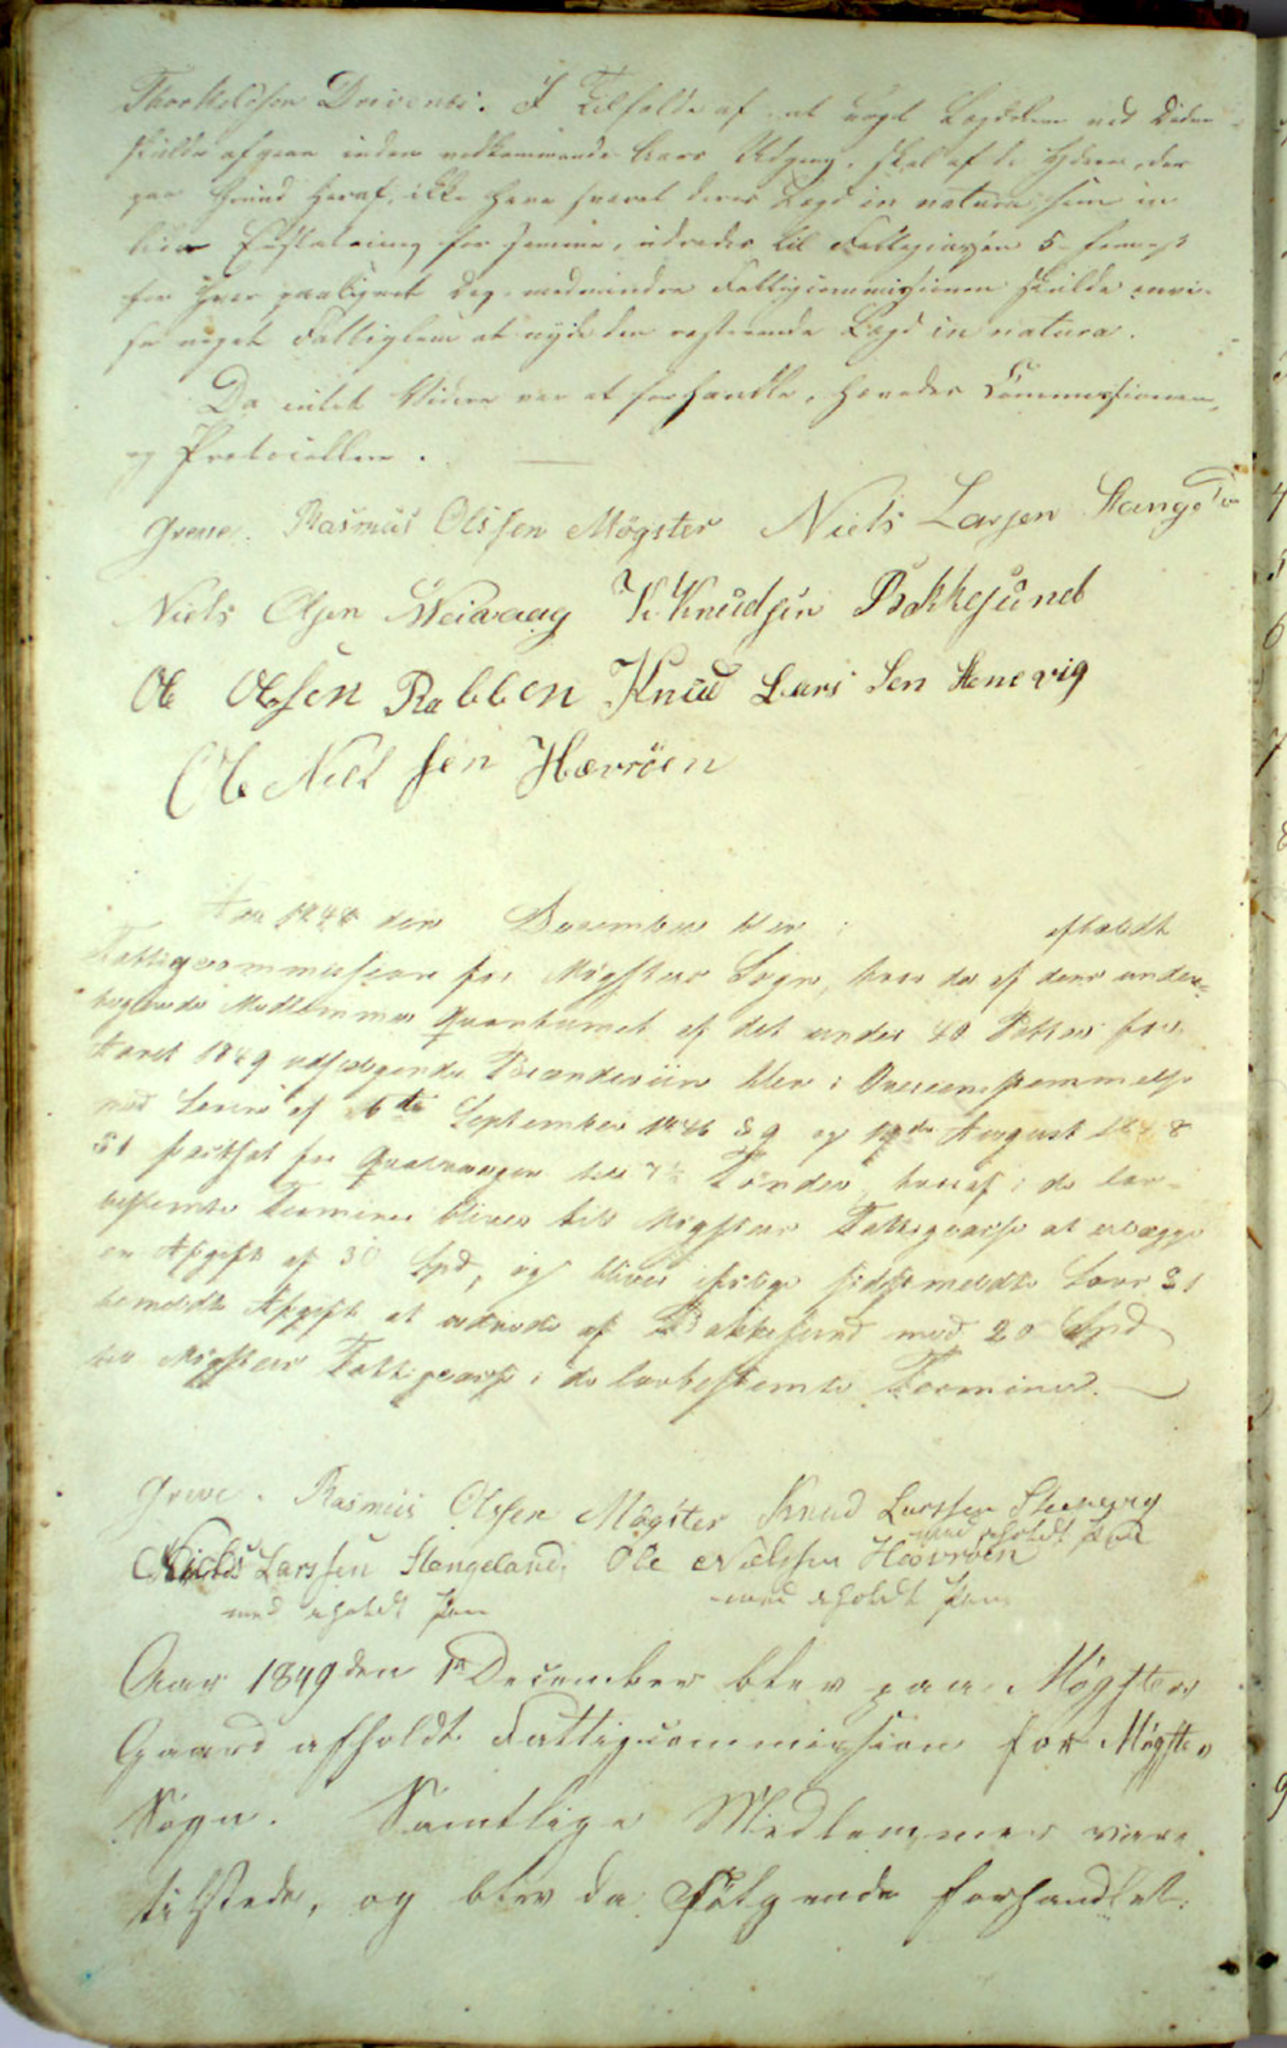 Thorkeldsen Drivenæs. I Tilfælde af at noget Lægdslem ved Døden
skulde afgaae inden vedkommende Aars Udgang, skal af de Ydere, der
paa Grund heraf, ikke have svaret deres Lægd in natura, som en
liden Erstatning for samme, udredes til Fattigcassen 5
for hver paalignet Dag, medmindre Fattigcommissionen skulde anvi-
se noget Fattiglem at nyde den resterende Lægd in natura.
Da intet Videre var at forhandle, hævedes Commissionen,
og Protocollen.
Greve. Rasmus Olssen Møgster Niels Larsen Stangeland
Niels Olsen Weivaag K. Knudsen Bakkesund
Ole Olssen Rabben Knud Lars Sen Stenevig
Ole Niel sen Hævrøen
Aar 1848 den December blev afholdt
Fattigcommission for Møgster Sogn, hvor da af dens under-
tegnede Medlemmer Qvantumet af det under 40 Potter for
Aaret 1849 udsælgende Brændeviin blev i Overeensstemmelse
med Lovene af 6te September 1845 § 9 og 19de August 1848
§ 1 fastsat for Qvalvaagen til 7½ Tønder, hvoraf i de lov-
bestemte Terminer bliver til Møgster Fattigcasse at erlægge
en Afgift af 30 Spd, og bliver ifølge sidstmeldte Lovs § 1
bemeldte Afgift at udrede af Bakkesund med 20 Spd
til Møgster Fattigcasse i de lovbestemte Terminer.
Greve. Rasmus Olssen Møgster Knud Larssen Stenevig
med iholdt Pen
Niels Larssen Stangeland, Ole Nielssen Hævrøen
med iholdt Pen med iholdt Pen
Aar 1849 den 1n December blev paa Møgster
Gaard afholdt Fattigcommission for Møgster
Sogn. Samtlige Medlemmer vare
tilstede, og blev da Følgende forhandlet: